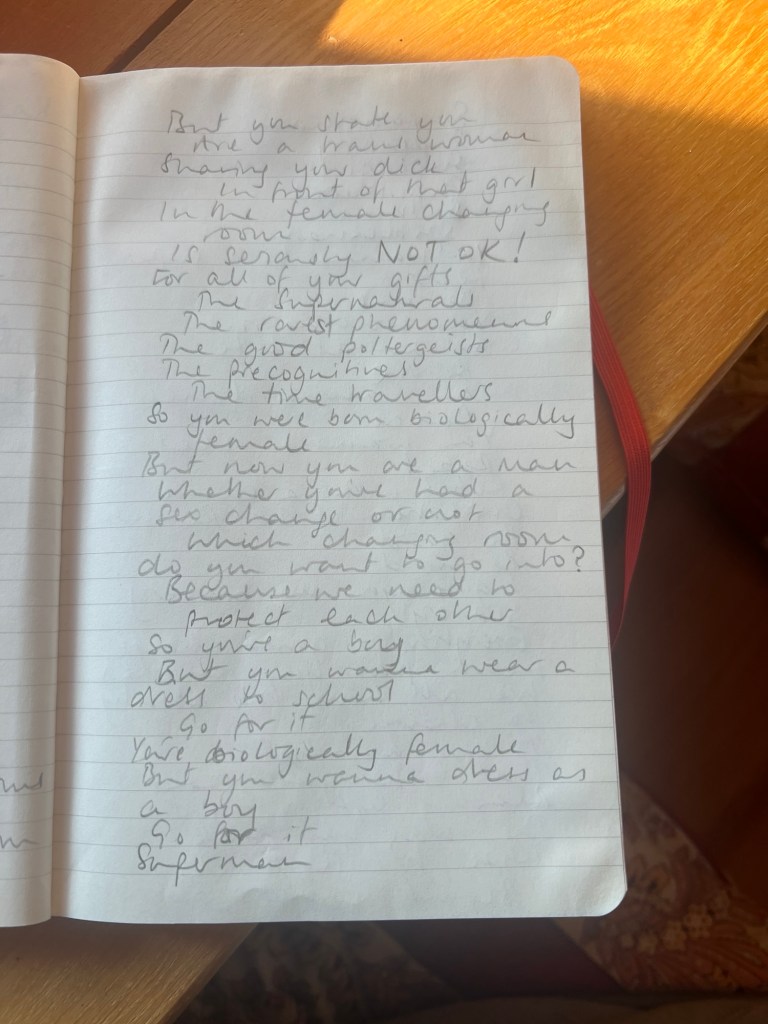 But you state you
Are a trans woman
Sharing your dick
In front of that girl
In the female changing
room
Is seriously NOT OK!
For all of your gifts
The Supernaturals
The rarest phenomenons
The good poltergeists
The precognitives
The time travellers
So you were born biologically
female
But now you are a man
Whether you've had a
sex change or not
Which changing room
do you want to go into?
Because we need to
protect each other
So you're a boy
But you wanna wear a
dress to school
Go for it
You're biologically female
But you wanna dress as
a boy
Go for it
Superman